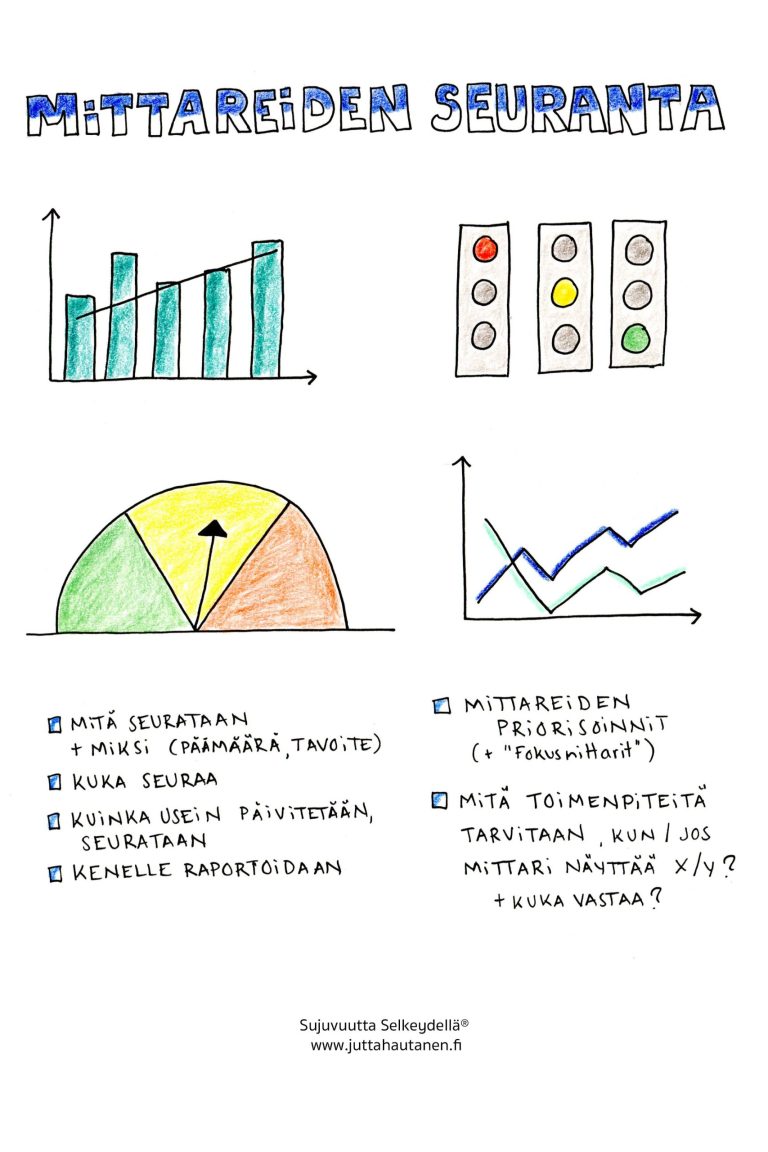 MITTAREIDEN SEURANTA
MITÄ SEURATAAN
+ MIKSI (PÄÄMÄÄRÄ, TAVOITE)
KUKA SEURAA
KUINKA USEIN PÄIVITETÄÄN,
SEURATAAN
KENELLE RAPORTOIDAAN
MITTAREIDEN
PRIORISOINNIT
(+ "Fokusmittarit")
MITÄ TOIMENPITEITÄ
TARVITAAN, KUN / JOS
MITTARI NÄYTTÄÄ X/Y?
+ KUKA VASTAA?
Sujuvuutta Selkeydellä®
www.juttahautanen.fi